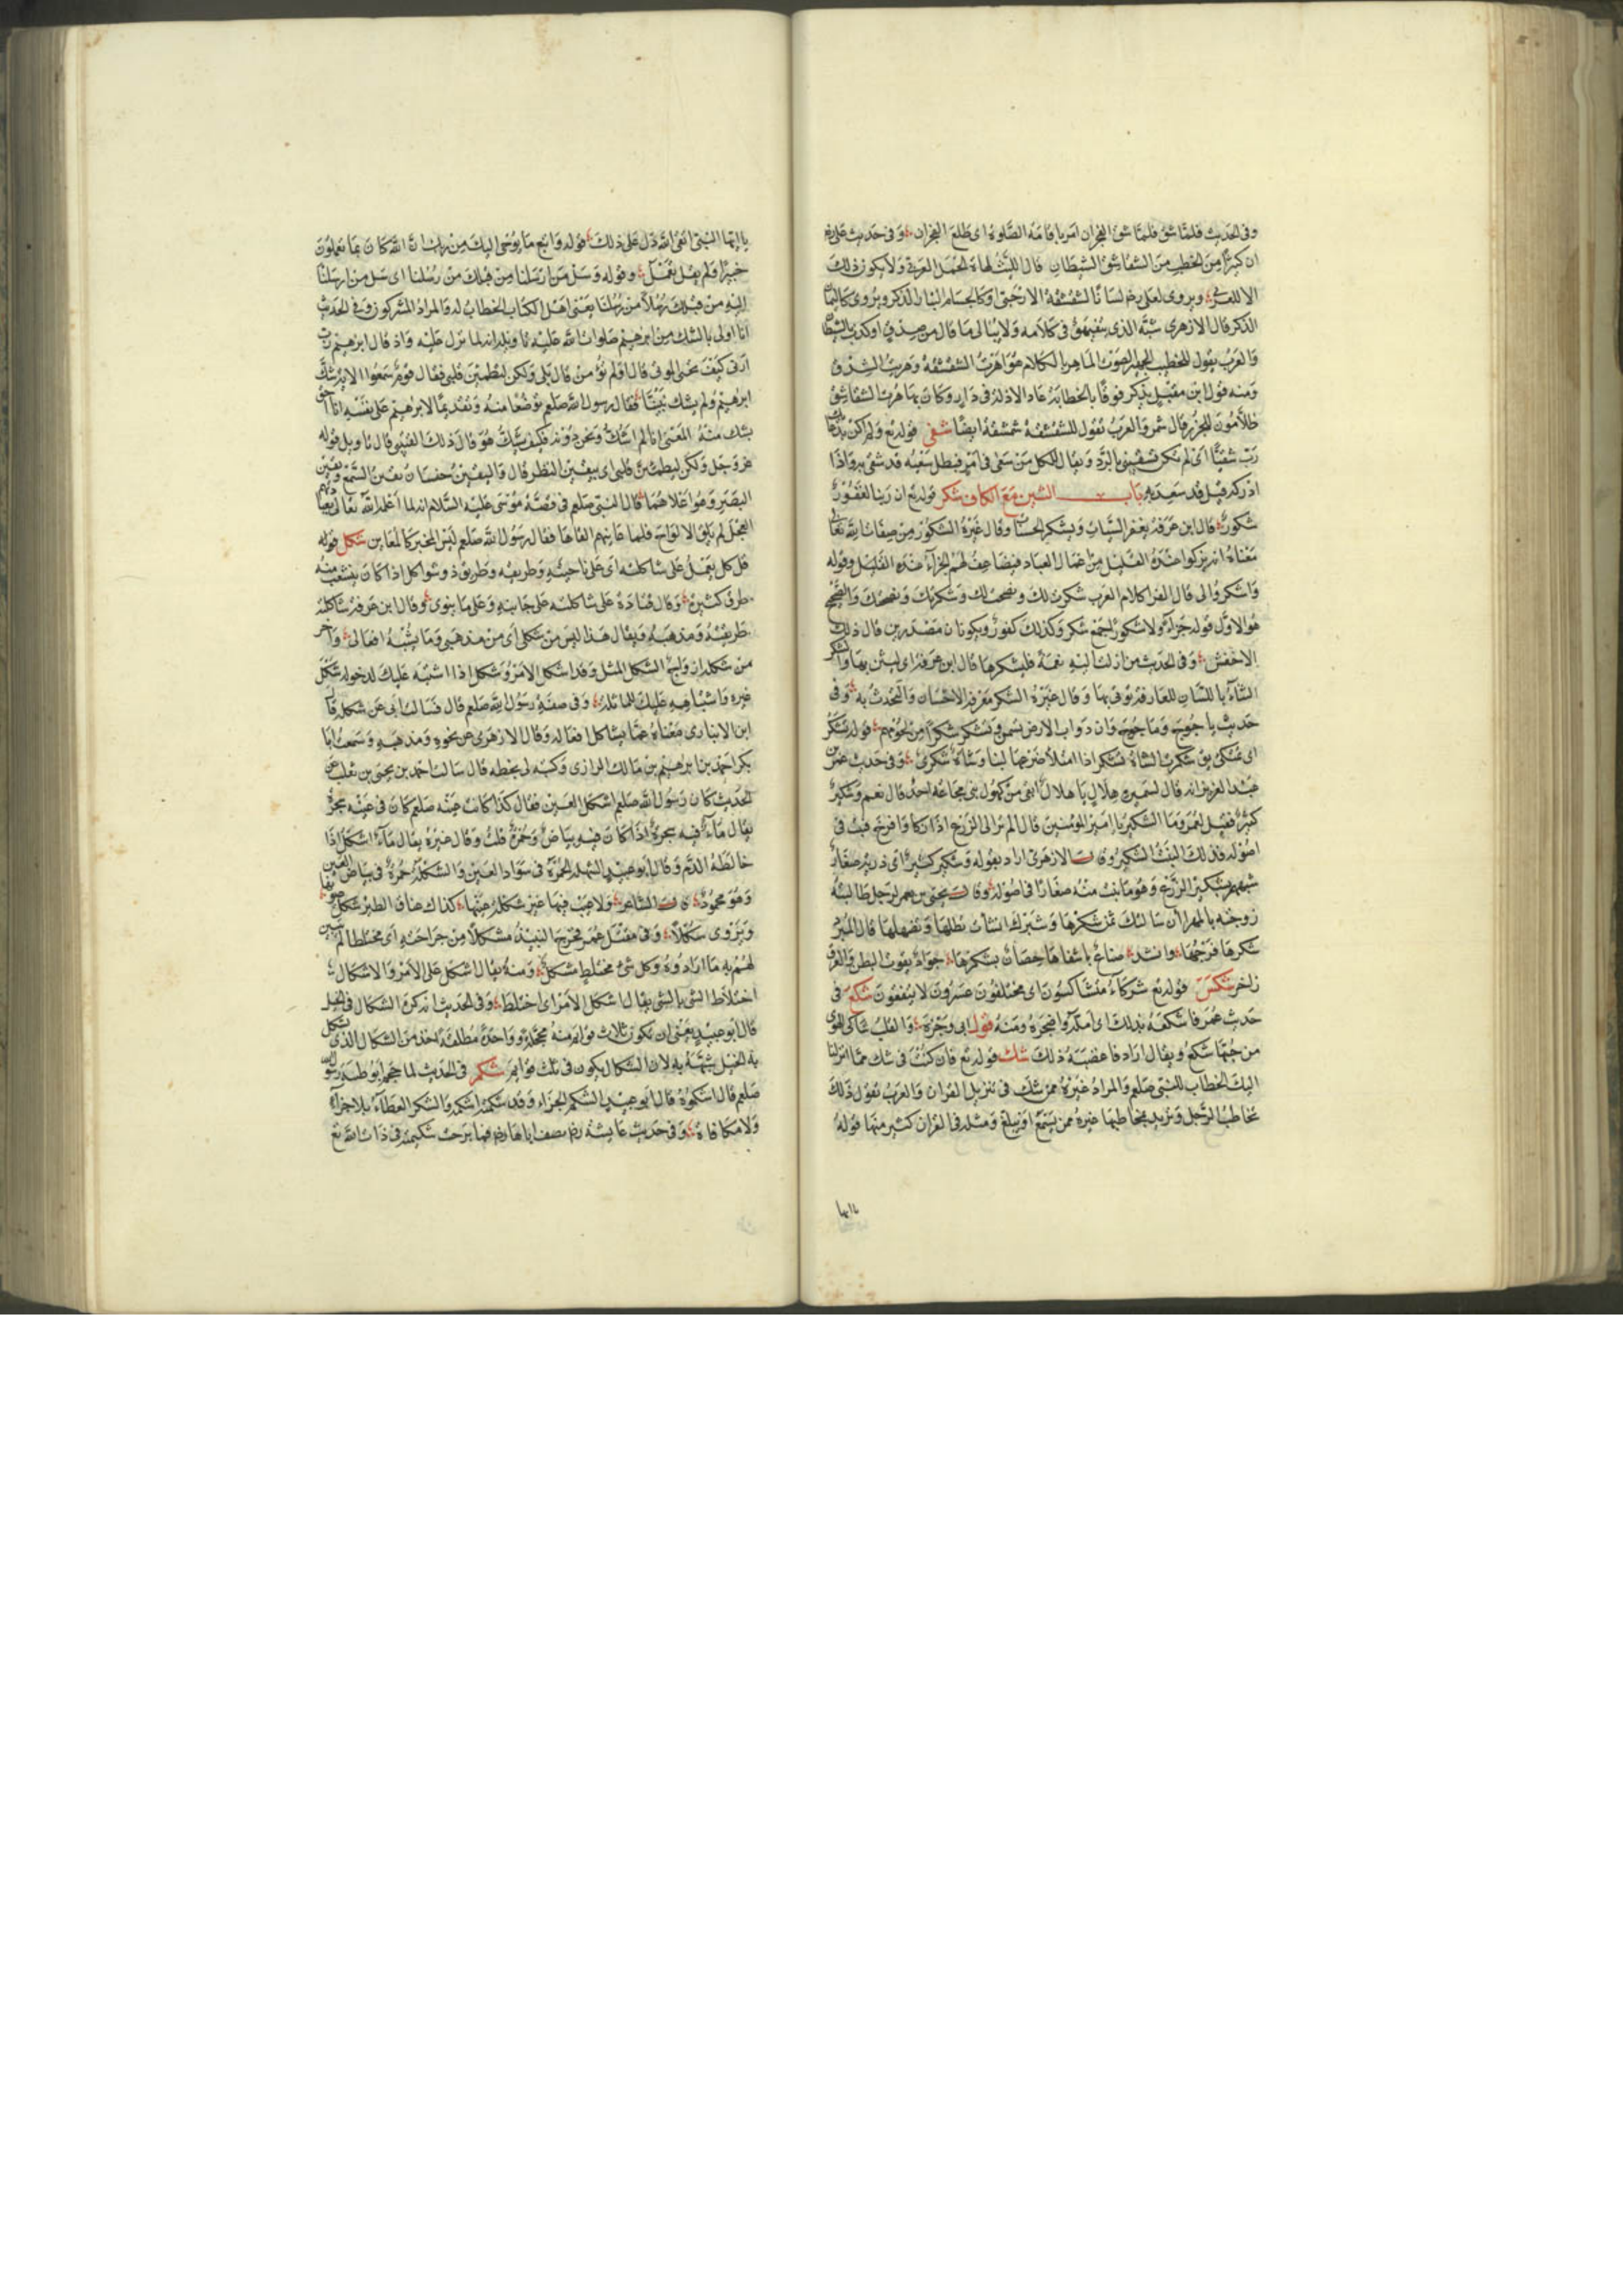 وفى الحديث فلما شق الفجران امر باقامة الصلوة اى طلع الفجران وفى حديث على رضه
ان كثيرا من الخطب من الشقاشق الشيطان قال الليث لهاة الجمل العربى ولا يكون ذلك
الا للعربى ويروى لعلى رضه لسانا كشقشقة الارحبى او كالحسام اليمان الذكر ويروى كاليمانى
الذكر قال الازهرى شبه الذى يتفيهق فى كلامه ولا يبالى ما قال من صدق او كذب بالشيطان
والعرب يقول للخطيب الجهير الصوت الماهر بالكلام هو اهرت الشقشقة وهريت الشدق
ومنه قول ابن مقبل يذكر قوما بالخطابة عاد الاذلة فى دار وكان بها هرت الشقاشق
ظلامون للجزر قال شمر والعرب تقول للشقشقة شمشقة ايضا شقى قوله تع ولم اكن بدعائك
رب شقيا اى لم تكن تشقينى بالرد ويقال لكل من سعى فى امر فبطل سعيه قد شقى به واذا
ادركه قيل قد سعد به باب الشين مع الكاف شكر قوله تع ان ربنا لغفور
شكور قال ابن عرفة يغفر السيات ويشكر الحسنات وقال غيره الشكور من صفات الله تعالى
معناه انه يزكوا عنده القليل من اعمال العباد فيضاعف لهم الجزاء عنده القليل وقوله
واشكروا لى قال الفرا كلام العرب شكرت لك ونصحت لك وشكرتك ونصحتك والفصيح
هو الاول قوله جزاء ولا شكورا جمع شكر وكذلك كفور ويكونان مصدرين قال ذلك
الاخفش وفى الحديث من ازلت اليه نعمة فليشكرها قال ابن عرفة اى ليثن بها والشكر
الثناء باللسان للعارفة توتى بها وقال غيره الشكر معرفة الاحسان والتحدث به وفى
حديث ياجوج وماجوج وان دواب الارض تسمن وتشكر شكرا من لحومهم قوله تشكر
اى تمتلئ يق شكرت الشاة تشكر اذا امتلا ضرعها لبنا وشاة شكرى وفى حديث عمر بن
عبد العزيز انه قال لسميره هلال يا هلال ابقى من كهول بنى مجاعة احد قال نعم وشكير
كثير فقيل لعمر وما الشكير يا امير المؤمنين قال الم تر الى الزرع اذا زكا وافرخ فنبت فى
اصوله فذلك النبت الشكير وقال الازهرى اراد بقوله وشكير كثير اى ذرية صغار
شبههم بشكير الزرع وهو ما نبت منه صغارا فى اصوله وقال يحيى بن يعمر لرجل طالبته
زوجته بالمهر أان سالتك ثمن شكرها وشبرك انشات تطلها وتضهلها قال المبرد
شكرها فرجها وانشد صناع باشفاها حصان بشكرها جواد بقوت البطن والعرق
زاخر شكس قوله تع شركاء متشاكسون اى مختلفون عسرون لا يتفقون شكع فى
حديث عمر فاشكعه بذلك اى امله واضجره ومنه قول ابى وجزة والقلب شاكى الهوى
من حبها شكع ويقال اراد فاغضبه ذلك شك قوله تع فان كنت فى شك مما انزلنا
اليك الخطاب للنبى صلعم والمراد غيره ممن شك فى تنزيل القران والعرب تقول ذلك
تخاطب الرجل وتريد بمخاطبتها غيره ممن يسمع او يبلغ ومثله فى القران كثير منها قوله
يا ايها
يا ايها النبى اتق الله دل على ذلك قوله واتبع ما يوحى اليك من ربك ان الله كان بما تعملون
خبيرا ولم يقل بما تعمل وقوله وسل من ارسلنا من قبلك من رسلنا اى سل من ارسلنا
اليه من قبلك رسلا من رسلنا يعنى اهل الكتاب الخطاب له والمراد المشركون وفى الحديث
انا اولى بالشك من ابرهيم صلوات الله عليه تاويله انه لما نزل عليه واذ قال ابرهيم رب
ارنى كيف تحيى الموتى قال اولم تؤمن قال بلى ولكن ليطمئن قلبى فقال قوم سمعوا الاية شك
ابرهيم ولم يشك نبينا فقال رسول الله صلعم تواضعا منه وتقديما لابرهيم على نفسه انا احق
بشك منه المعنى انا لم اشك ونحن دونه فكيف يشك هو قال ذلك القتيبى قال تاويل قوله
عز وجل ولكن ليطمئن قلبى اى بيقين النظر قال واليقين جنسان يقين السمع ويقين
البصر وهو اعلاهما قال النبى صلعم فى قصة موسى عليه السلام انه لما اعلمه الله تعالى بعبادتهم
العجل لم يلق الالواح فلما عاينهم القاها فقال رسول الله صلعم ليس المخبر كالمعاين شكل قوله
قل كل يعمل على شاكلته اى على ناحيته وطريقته وطريق ذو شواكل اذا كان يتشعب منه
طرق كثيرة وقال قتادة على شاكلته على جانبه وعلى ما ينوى وقال ابن عرفة شاكلته
طريقته ومذهبه ويقال هذا ليس من شكلى اى من مذهبى وما يشبه افعالى واخر
من شكله ازواج الشكل المثل وقد اشكل الامر وشكل اذا اشتبه عليك لدخوله شكل
غيره واشتباهه عليك للمماثلة وفى صفة رسول الله صلعم قال فسالت ابى عن شكله قال
ابن الانبارى معناه عما يشاكل افعاله وقال الازهرى عن نحوه ومذهبه وسمعت ابا
بكر احمد بن ابرهيم بن مالك الرازى وكتبه لى بخطه قال سالت احمد بن يحيى بن ثعلب عن
الحديث كان رسول الله صلعم اشكل العين فقال كذا كانت عينه صلعم كان فى عينه سجرة
يقال ماء فيه سجرة اذا كان فيه بياض وحمرة قلت وقال غيره يقال ماء اشكل اذا
خالطه الدم وقال ابو عبيد الشهلة الحمرة فى سواد العين والشكلة حمرة فى بياض العين
وهو محمود قال الشاعر ولا عيب فيها غير شكلة عينها كذاك عتاق الطير شكل عيونها
ويروى شكلا وفى مقتل عمر فخرج النبيذ مشكلا من جراحته اى مختلطا لم يتبين
لهم به ما ارادوه وكل شئ مختلط مشكل ومنه يقال اشكل على الامر والاشكال
اختلاط الشى بالشى يقال اشكل الامر اى اختلط وفى الحديث انه كره الشكال فى الخيل
قال ابو عبيد يعنى ان تكون ثلاث قوايم منه محجلة وواحدة مطلقة اخذ من الشكال الذى يشكل
به الخيل شبهه به لان الشكال يكون فى ثلث قوايم شكم فى الحديث لما حجم ابو طيبة رسول الله
صلعم قال اشكموه قال ابو عبيد الشكم الجزاء وقد شكمته اشكمه والشكر العطاء بلا جزاء
ولا مكافاة وفى حديث عايشة رضه تصف اباها رضه فما برحت شكيمته فى ذات الله تع